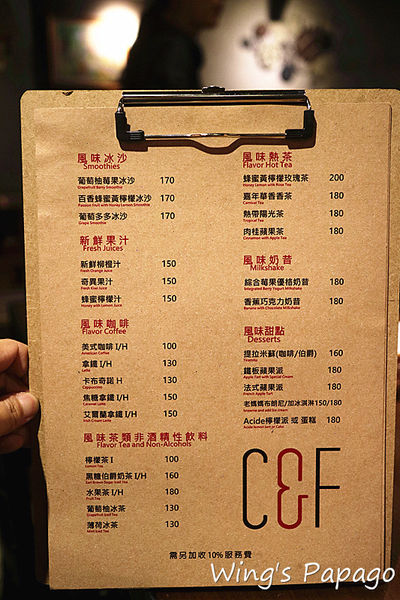 風味冰沙
Smoothies
葡萄柚莓果冰沙 170
Grapefruit Berry Smoothie
百香蜂蜜黃檸檬冰沙 170
Passion Fruit with Honey Lemon Smoothie
葡萄多多冰沙 170
Grape Smoothie
新鮮果汁
Fresh Juices
新鮮柳橙汁 150
Fresh Orange Juice
奇異果汁 150
Fresh Kiwi Juice
蜂蜜檸檬汁 150
Honey with Lemon Juice
風味咖啡
Flavor Coffee
美式咖啡 I/H 100
American Coffee
拿鐵 I/H 130
Latte
卡布奇諾 H 130
Cappuccino
焦糖拿鐵 I/H 150
Caramel Latte
艾爾蘭拿鐵 I/H 150
Irish Cream Latte
風味茶類非酒精性飲料
Flavor Tea and Non-Alcohols
檸檬茶 I 100
Lemon Tea
黑糖伯爵奶茶 I/H 160
Earl Brown Sugar Iced Tea
水果茶 I/H 180
Fruit Tea
葡萄柚冰茶 130
Grapefruit Iced Tea
薄荷冰茶 130
Mint Iced Tea
風味熱茶
Flavor Hot Tea
蜂蜜黃檸檬玫瑰茶 200
Honey Lemon with Rose Tea
嘉年華香香茶 180
Carnival Tea
熱帶陽光茶 180
Tropical Tea
肉桂蘋果茶 180
Cinnamon with Apple Tea
風味奶昔
Milkshake
綜合莓果優格奶昔 180
Integrated Berry Yogurt Milkshake
香蕉巧克力奶昔 180
Banana with Chocolate Milkshake
風味甜點
Desserts
提拉米蘇(咖啡/伯爵) 160
Tiramisu
鐵板蘋果派 180
Apple Tart with Special Cream
法式蘋果派 180
French Apple Tart
老媽媽布朗尼/加冰淇淋150/180
Brownie and add Ice cream
Acide檸檬派 或 蛋糕 180
Acide lemon tart or Cake
C&F
需另加收10%服務費
Wing's Papago